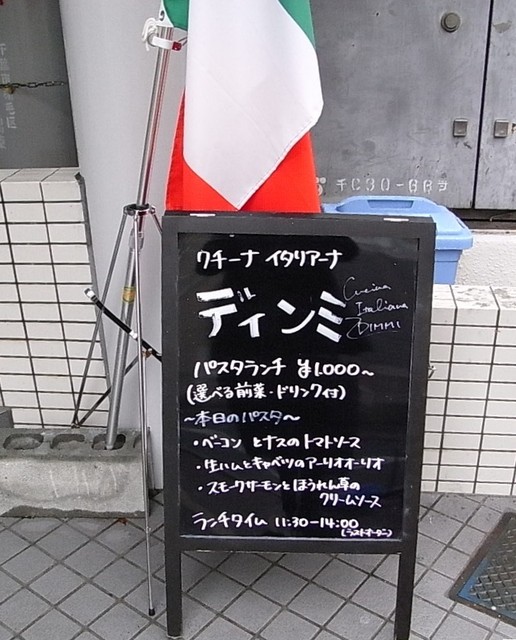 千C30-88号
クチーナ イタリアーナ
ディンミ
Cucina
Italiana
DIMMI
パスタランチ ¥1,000～
(選べる前菜・ドリンク付)
～本日のパスタ～
・ベーコン とナスのトマトソース
・生ハムとキャベツのアーリオオーリオ
・スモークサーモンとほうれん草の
クリームソース
ランチタイム 11:30-14:00
(ラストオーダー)